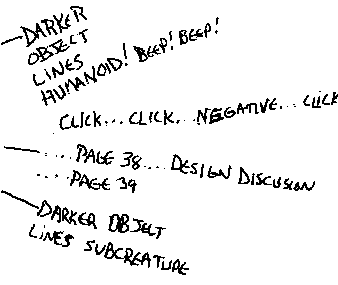 —DARKER
OBJECT
LINES
HUMANOID! BEEP! BEEP!
CLICK... CLICK... NEGATIVE... CLICK
—....PAGE 38.... DESIGN DISCUSION
....PAGE 39
—DARKER OBJECT
LINES SUBCREATURE